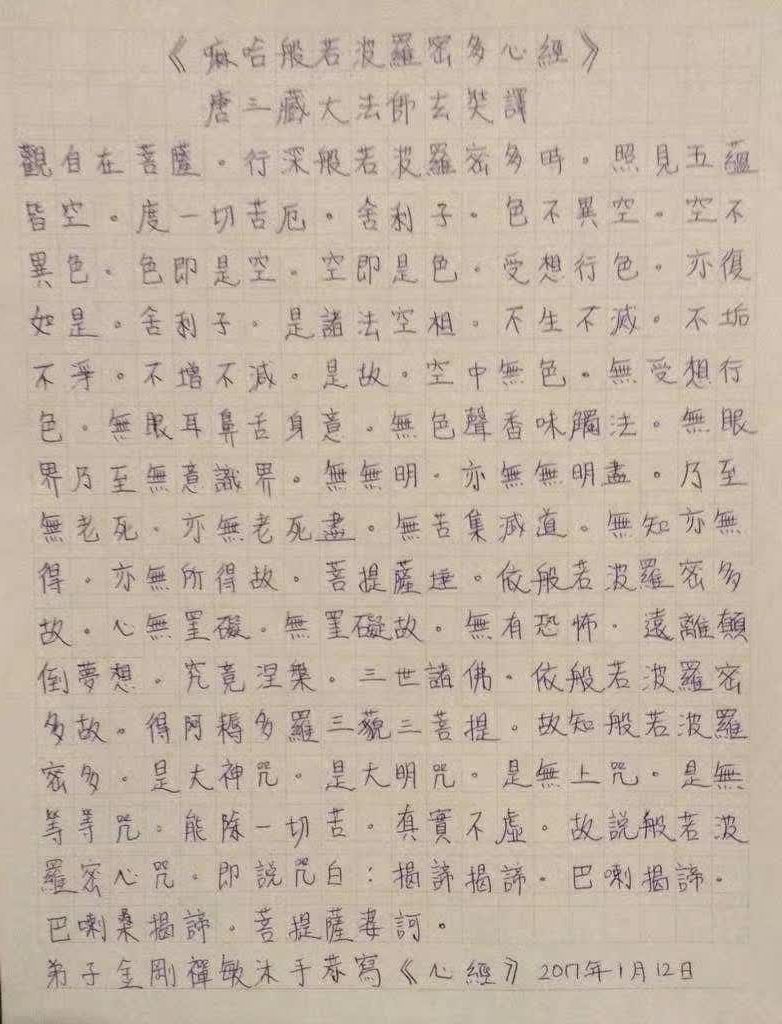 《嘛哈般若波羅密多心經》
唐三藏大法師玄奘譯
觀自在菩薩。行深般若波羅密多時。照見五蘊
皆空。度一切苦厄。舍利子。色不異空。空不
異色。色即是空。空即是色。受想行色。亦復
如是。舍利子。是諸法空相。不生不滅。不垢
不淨。不增不減。是故。空中無色。無受想行
色。無眼耳鼻舌身意。無色聲香味觸法。無眼
界乃至無意識界。無無明。亦無無明盡。乃至
無老死。亦無老死盡。無苦集滅道。無知亦無
得。亦無所得故。菩提薩埵。依般若波羅密多
故。心無罣礙。無罣礙故。無有恐怖。遠離顛
倒夢想。究竟涅槃。三世諸佛。依般若波羅密
多故。得阿耨多羅三藐三菩提。故知般若波羅
密多。是大神咒。是大明咒。是無上咒。是無
等等咒。能除一切苦。真實不虛。故說般若波
羅密心咒。即說咒曰：揭諦揭諦。巴喇揭諦。
巴喇桑揭諦。菩提薩婆訶。
弟子金剛禪敏沐手恭寫《心經》2017年1月12日